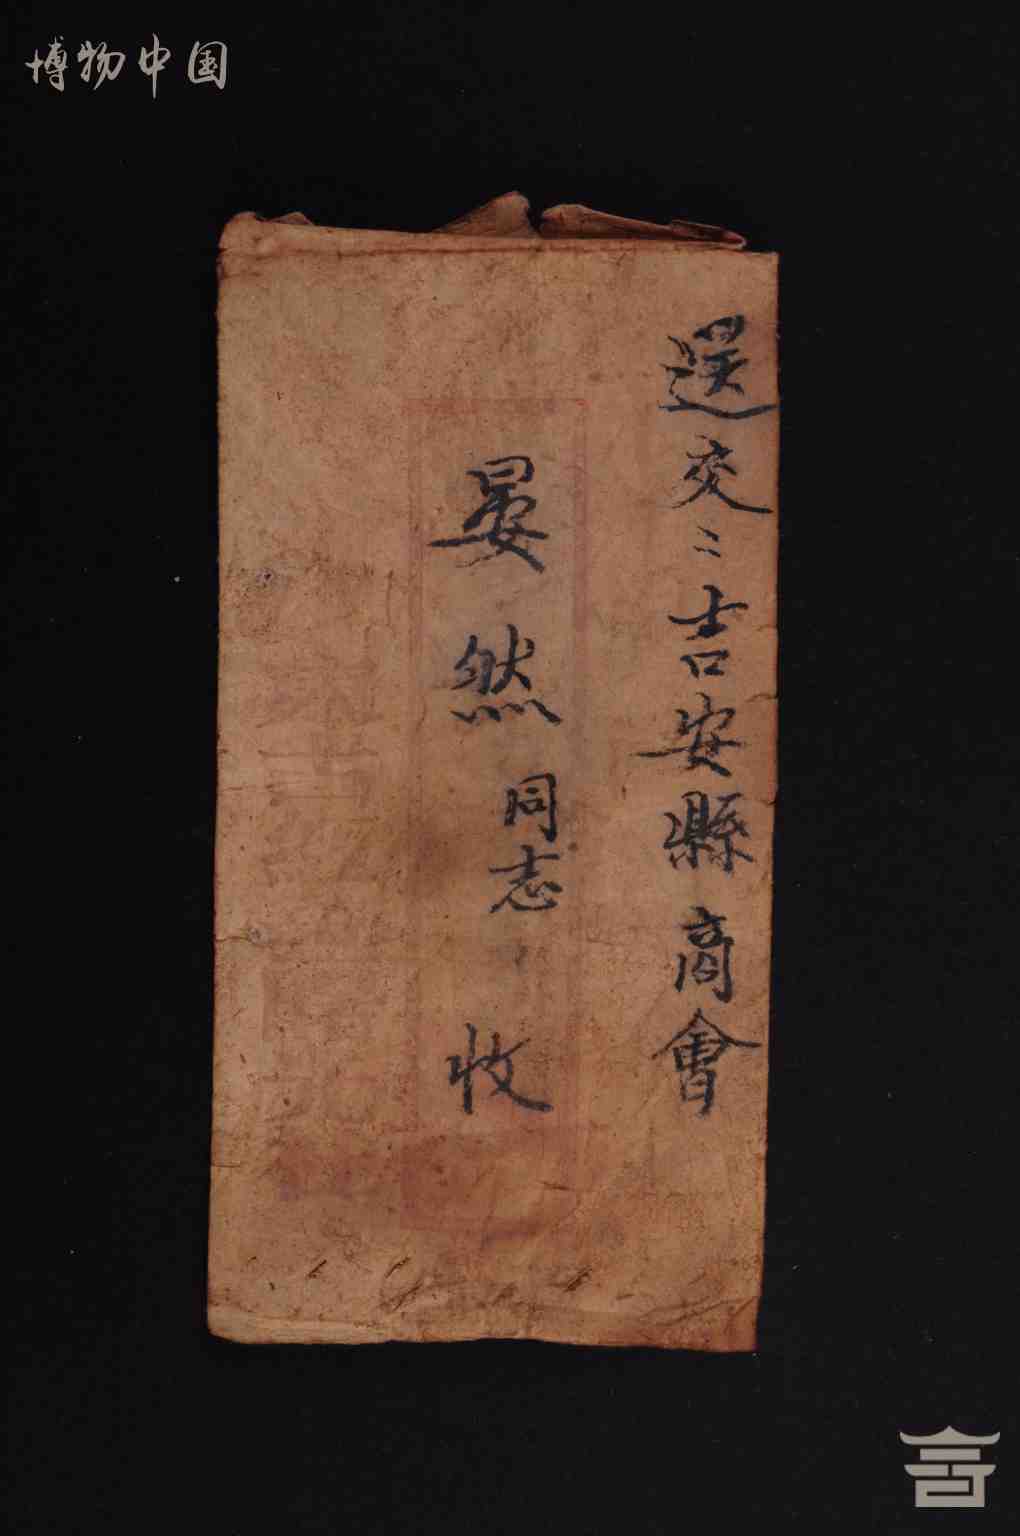 博物中国
送交：吉安縣商會
晏然同志收